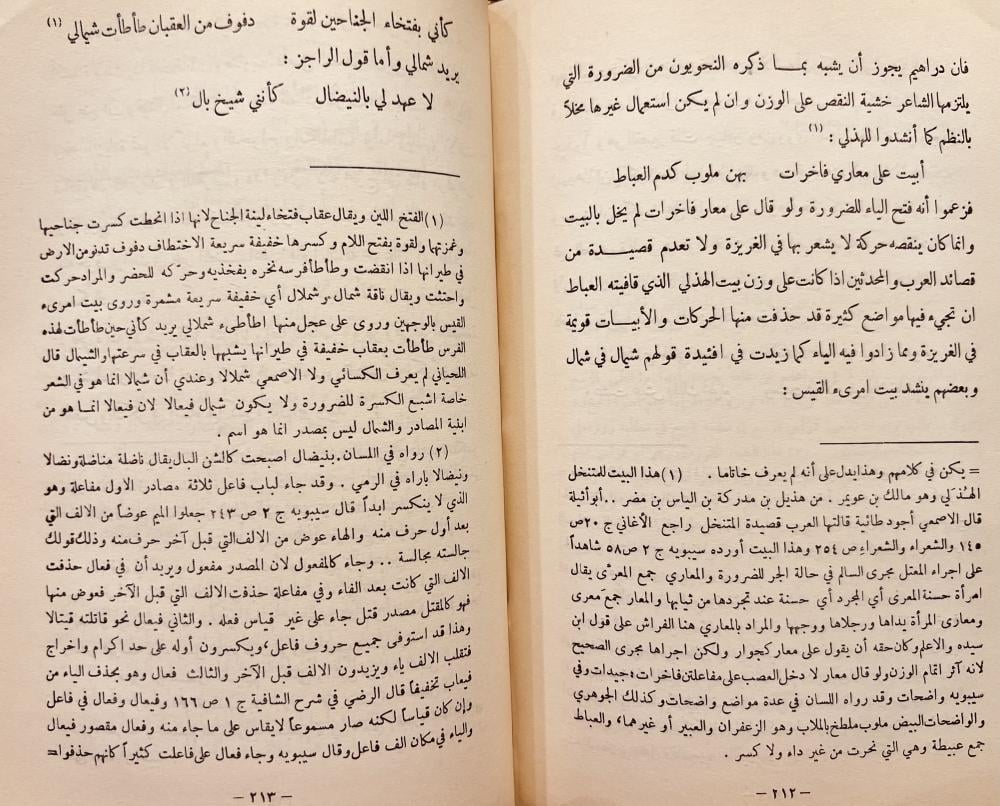 فان دراهيم يجوز أن يشبه بما ذكره النحويون من الضرورة التي
يلتزمها الشاعر خشية النقص على الوزن وان لم يكن استعمال غيرها مخلاً
بالنظم كما أنشدوا للهذلي : (١)
أبيت على معاري فاخرات بهن ملوب كدم العباط
فزعموا أنه فتح الياء للضرورة ولو قال على معار فاخرات لم يخل بالبيت
وانما كان ينقصه حركة لا يشعر بها في الغريزة ولا تعدم قصيدة من
قصائد العرب والمحدثين اذا كانت على وزن بيت الهذلي الذي قافيته العباط
ان تجيء فيها مواضع كثيرة قد حذفت منها الحركات والأبيات قويمة
في الغريزة ومما زادوا فيه الياء كما زيدت في افئيدة قولهم شيمال في شمال
وبعضهم ينشد بيت امرىء القيس :
= يكن في كلامهم وهذا يدل على أنه لم يعرف خاتاما . (١) هذا البيت للمتنخل
الهُذلي وهو مالك بن عويمر . من هذيل بن مدركة بن الياس بن مضر .. أبو أثيلة
قال الاصمعي أجود طائية قالتها العرب قصيدة المتنخل راجع الأغاني ج ٢٠ ص
١٤٥ والشعراء والشعراء ص ٢٥٤ وهذا البيت أورده سيبويه ج ٢ ص ٥٨ شاهداً
على اجراء المعتل مجرى السالم في حالة الجر للضرورة والمعاري جمع المعرّى يقال
امرأة حسنة المعرى أي المجرد أي حسنة عند تجردها من ثيابها والمعار جمع معرى
ومعارى المرأة يداها ورجلاها ووجهها والمراد بالمعاري هنا الفراش على قول ابن
سيده والاعلم وكان حقه أن يقول على معار كجوار ولكن اجراها مجرى الصحيح
لانه آثر اتمام الوزن ولو قال معار لا دخل العصب على مفاعلتن فاخرات : جيدات وفي
سيبويه واضحات وقد رواه اللسان في عدة مواضع واضحات وكذلك الجوهري
والواضحات البيض ملوب ملطخ بالملاب وهو الزعفران والعبير أو غيرهما والعباط
جمع عبيطة وهي التي نحرت من غير داء ولا كسر .
— ٢١٢ —
كأني بفتخاء الجناحين لقوة دفوف من العقبان طأطأت شيمالي (١)
يريد شمالي وأما قول الراجز :
لا عهد لي بالنيضال كأنني شيخ بال (٢)
(١) الفتخ اللين ويقال عقاب فتخاء لينة الجناح لانها اذا انحطت كسرت جناحيها
وغمزتها ولقوة بفتح اللام وكسرها خفيفة سريعة الاختطاف دفوف تدنو من الارض
في طيرانها اذا انقضت وطأطأ فرسه نخره بفخذيه وحركه للحضر والمراد حركت
واحتثت ويقال ناقة شمال وشملال أي خفيفة سريعة مشمرة وروى بيت امرىء
القيس بالوجهين وروى على عجل منها اطأطىء شملالي يريد كأني حين طأطأت لهذه
الفرس طأطأت بعقاب خفيفة في طيرانها يشبهها بالعقاب في سرعتها والشيمال قال
اللحياني لم يعرف الكسائي ولا الاصمعي شملالا وعندي أن شيمالا انما هو في الشعر
خاصة اشبع الكسرة للضرورة ولا يكون شيمال فيعالا لان فيعالا انما هو من
ابنية المصادر والشمال ليس بمصدر انما هو اسم .
(٢) رواه في اللسان . بنيضال اصبحت كالشن البال يقال ناضلة مناضلة ونضالا
ونيضالا باراه في الرمي . وقد جاء لباب فاعل ثلاثة مصادر الاول مفاعلة وهو
الذي لا ينكسر ابداً قال سيبويه ج ٢ ص ٢٤٣ جعلوا الميم عوضاً من الالف التي
بعد أول حرف منه والهاء عوض من الالف التي قبل آخر حرف منه وذلك قولك
جالسته مجالسة .. وجاء كالمفعول لان المصدر مفعول ويريد أن في فعال حذفت
الالف التي كانت بعد الفاء وفي مفاعلة حذفت الالف التي قبل الآخر فعوض منها
فهو كالمقتل مصدر قتل جاء على غير قياس فعله . والثاني فيعال نحو قاتلته قيتالا
وهذا قد استوفى جميع حروف فاعل ويكسرون أوله على حد اكرام واخراج
فتقلب الالف ياء ويزيدون الالف قبل الآخر والثالث فعال وهو بحذف الياء من
فيعاب تخفيفاً قال الرضي في شرح الشافية ج ١ ص ١٦٦ وفيعال وفعال في فاعل
وإن كان قياساً لكنه صار مسموعاً لا يقاس على ما جاء منه وفعال مقصور فيعال
والياء في مكان الف فاعل وقال سيبويه وجاء فعال على فاعلت كثيراً كانهم حذفوا =
— ٢١٣ —